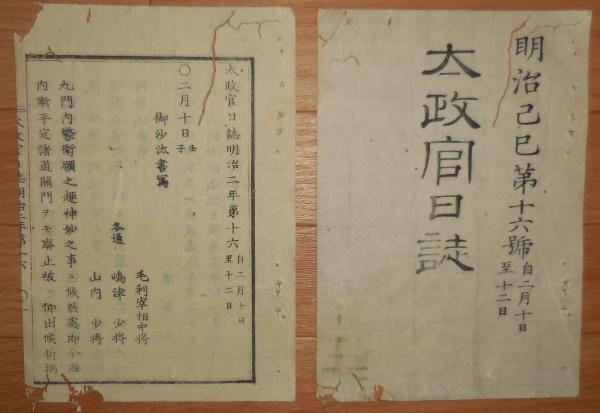 明治己巳第十六號 自二月十日 至十二日
太政官日誌
太政官日誌明治二年第十六 自二月十日 至十二日
〇二月十日 壬子
御沙汰書寫
毛利宰相中將
各通 嶋津 少將
山内 少將
九門内警衛願之趣神妙之事ニ候然處即今海
内漸平定諸道關門ヲモ廢止被 仰出候折柄